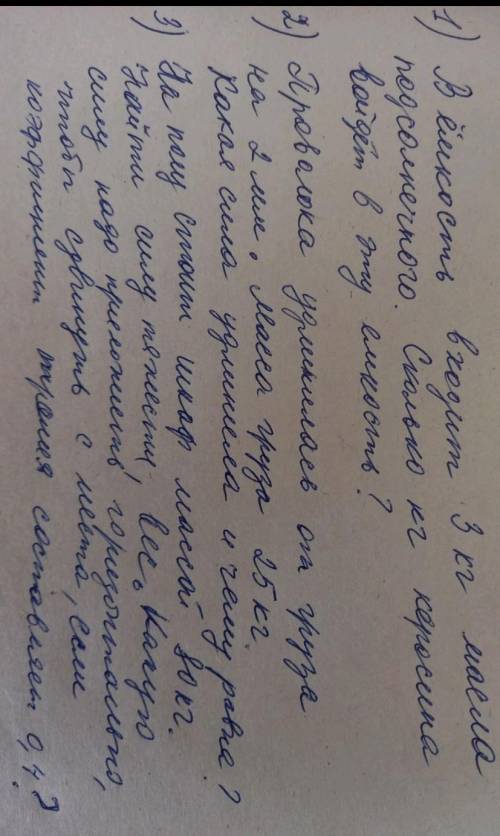 1) В ёмкость входит 3 кг масла
подсолнечного. Сколько кг керосина
войдёт в эту емкость?
2) Проволока удлинилась от груза
на 2 мм. Масса груза 25 кг.
Какая сила удлинела и чему равна?
3) На полу стоит шкаф массой 80 кг.
Найти силу тяжести, вес. Какую
силу надо приложить горизонтально,
чтобы сдвинуть с места, если
коэффициент трения составляет 0,48.